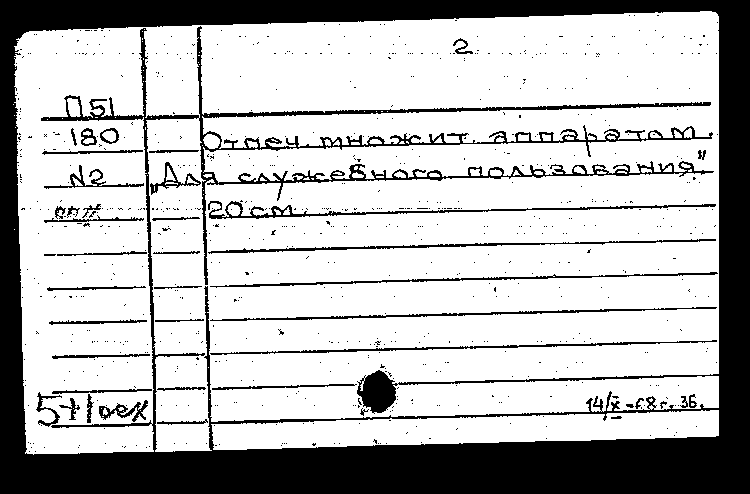 2
П51
180 Отпеч. множит. аппаратом.
N2 „Для служебного пользования".
20 см.
14/X -68 г. 36.